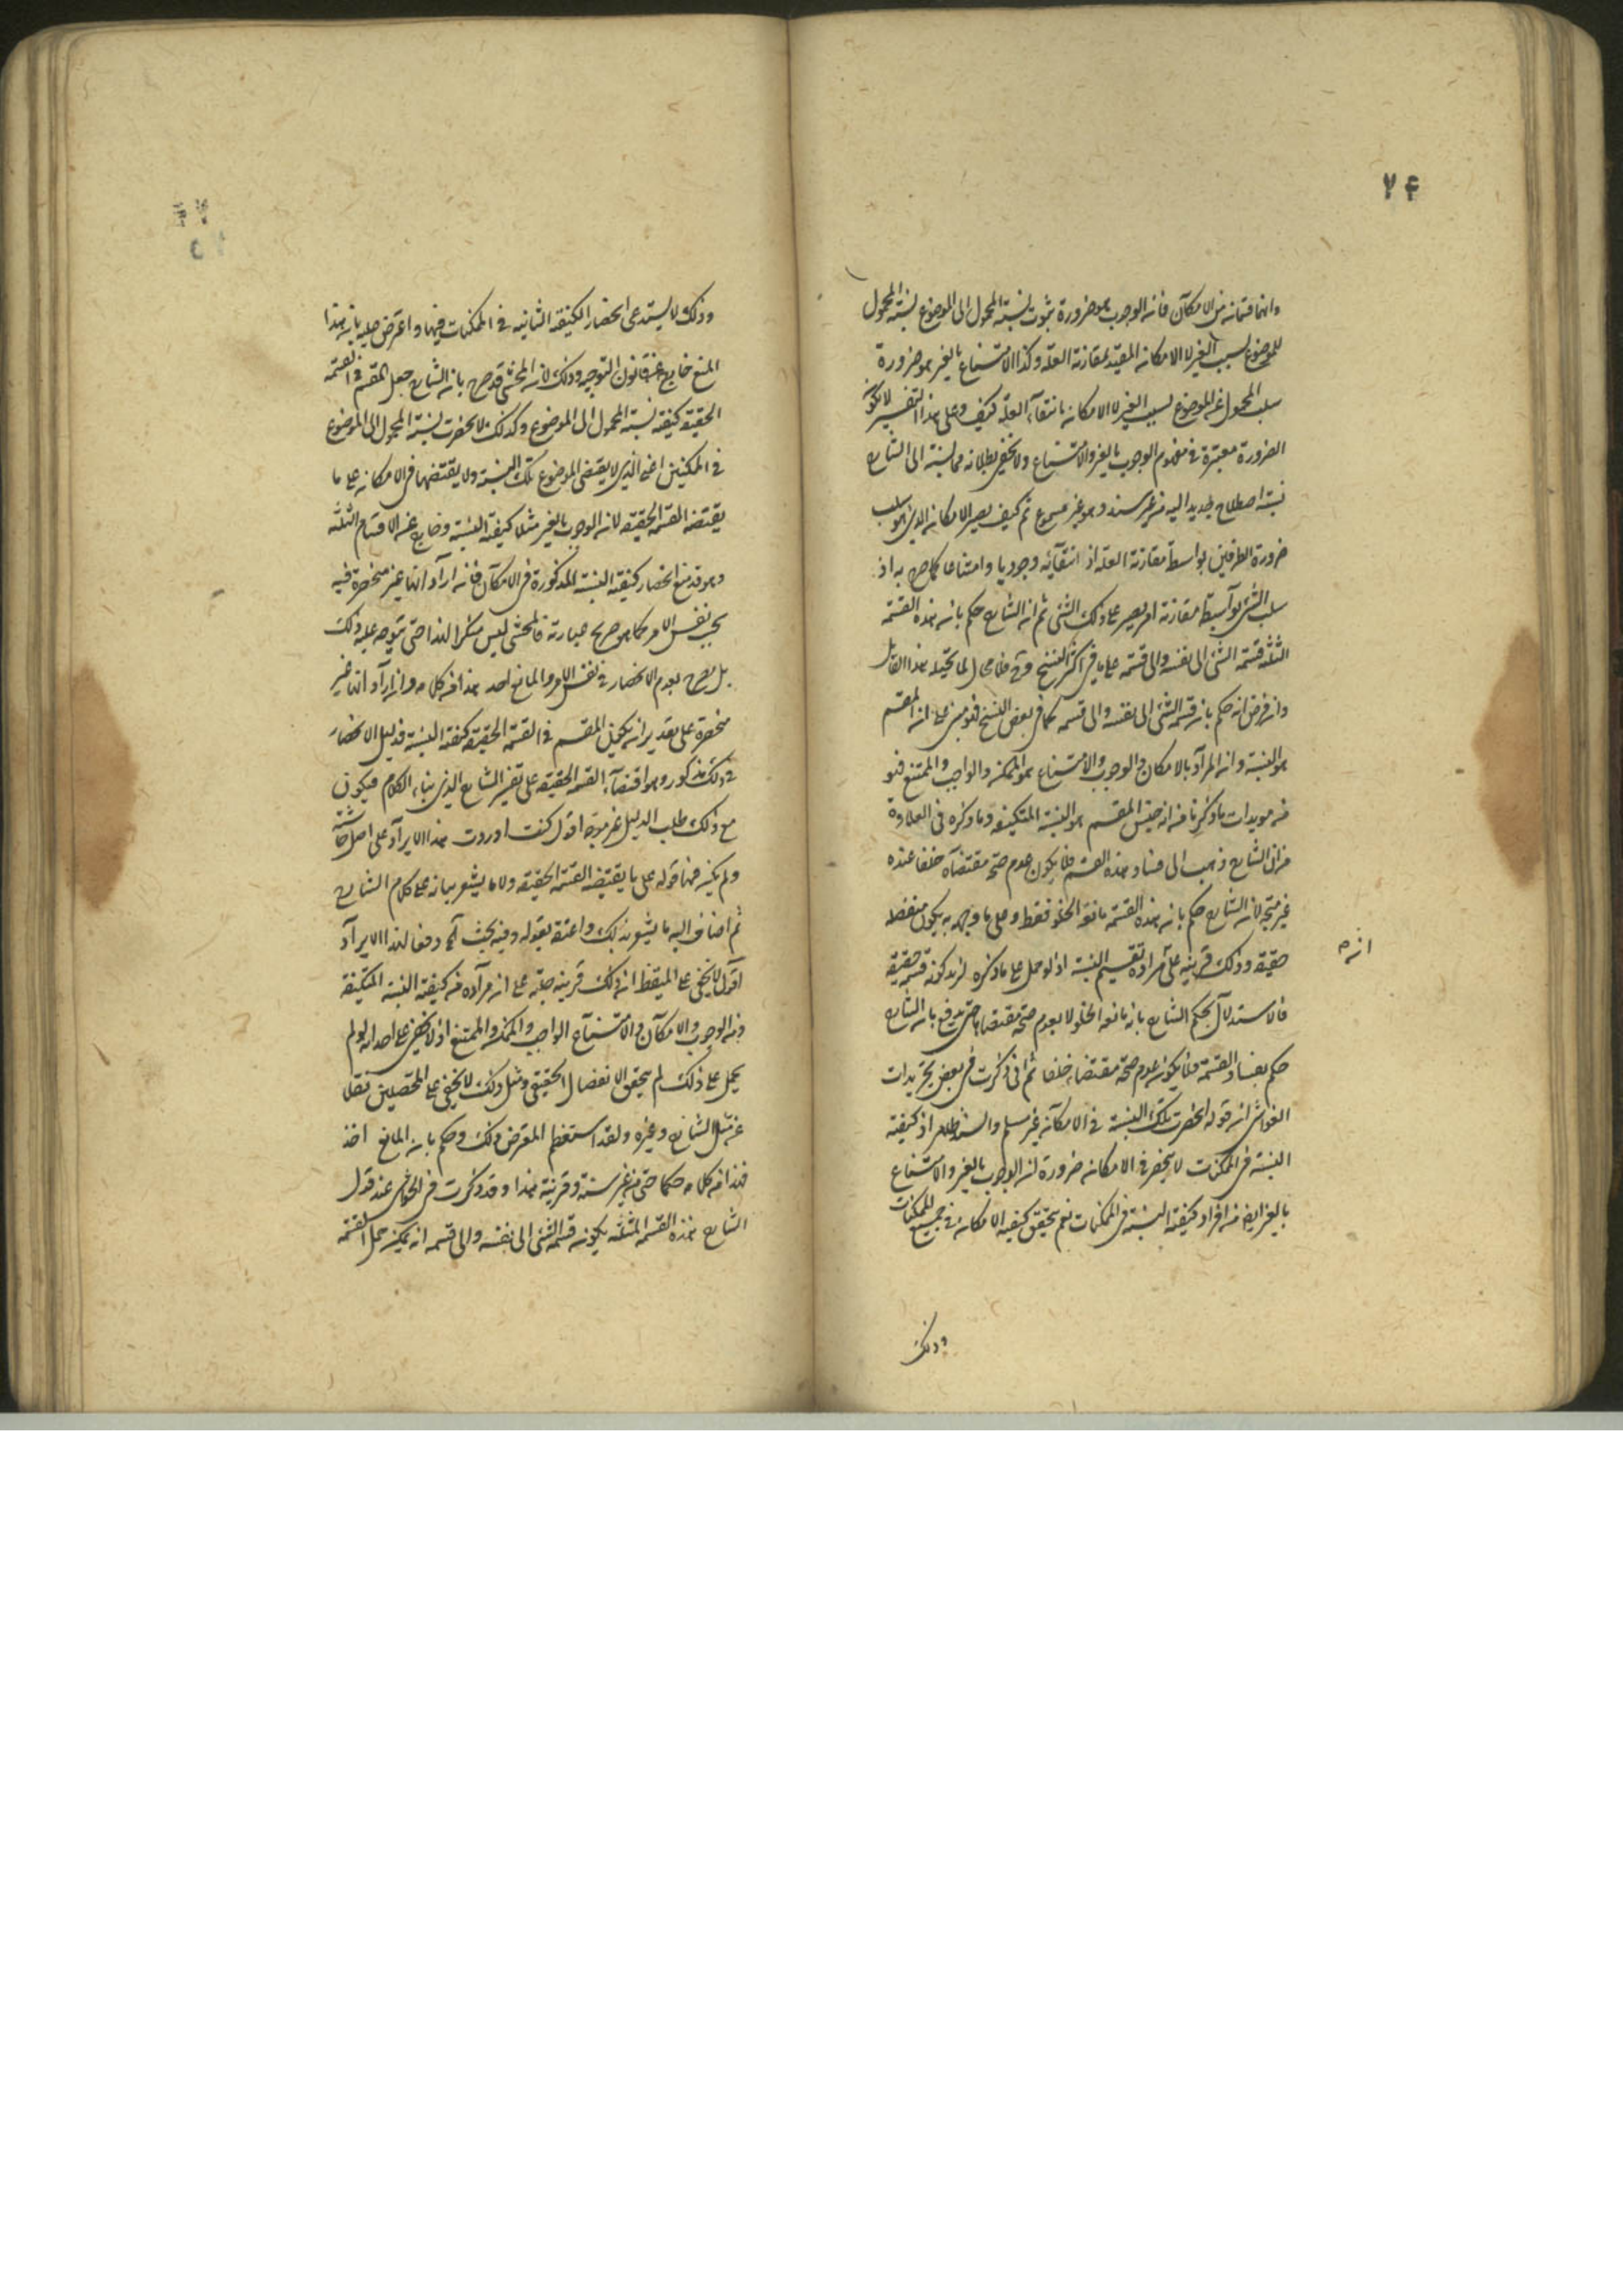 ۷۴
وانهما قسمان من الامكان فانه الوجوب هو ضرورة ثبوت نسبة المحمول الى الموضوع نسبة المحمول
للموضوع بسبب الغير لا الامكان المقيد بمقارنة العلة وكذا الامتناع بالغير هو ضرورة
سلب المحمول عن الموضوع بسبب الغير لا الامكان بانتفاء العلة كيف وعلى هذا التفسير لا يكون
الضرورة معتبرة في مفهوم الوجوب بالغير والامتناع ولا يخفى بطلانه فما نسبة الى الشارح
نسبة اصطلاح جديد اليه من غير سند وهو غير مسموع ثم كيف يصير الامكان الذي هو سلب
ضرورة الطرفين بواسطة مقارنة العلة او انتفائه وجوديا وامتناعا كما صرح به اذ
سلب الشئ بواسطة مقارنة امر يصير على ذلك الشئ ثم ان الشارح حكم بان هذه القسمة
الثلثة قسمة الشئ الى نفسه والى قسمه على ما في اكثر النسخ وح فلا مجال لما تخيله هذا القائل
وان فرض انه حكم بان قسمة الشئ الى نفسه والى قسمه كما في بعض النسخ فهو مبنى على ان المقسم
هو النسبة وان المراد بالامكان والوجوب والامتناع هو الممكن والواجب والممتنع فهو
من مويدات ما ذكرنا من انه جنس المقسم هو النسبة المتكيفة وما ذكره في العلاوة
من ان الشارح ذهب الى فساد هذه القسمة فلا يكون عدم صحة مقتضاه خلفا عنده
غير متجه لان الشارح حكم بان هذه القسمة مانعة الخلو فقط وعلى ما وجهه به يكون منفصلة
حقيقة وذلك قرينة على مراده تقسيم النسبة اذ لو حمل على ما ذكره لزم كونه قسمة حقيقة
انه م
فالاستدلال بحكم الشارح بانه مانعة الخلو لا بعدم صحة مقتضاه حتى يدفع بان الشارح
حكم بفساد القسمة فلا يكون عدم صحة مقتضاه خلفا ثم انى ذكرت في بعض تجريدات
الغواشى ان قوله انحصرت تلك النسبة في الامكان غير مسلم والسند ظاهر اذ كيفية
النسبة في الممكنات لا ينحصر في الامكان ضرورة ان الوجوب بالغير والامتناع
بالغير ايضا من افراد كيفية النسبة في الممكنات نعم يتحقق كيفية الامكان في جميع الممكنات
وذلك
وذلك لا يستدعى انحصار الكيفية الثانية في الممكنات فيها واعترض عليه بان هذا
المنع خارج عن قانون التوجيه وذلك لان المحشى قد صرح بان الشارح جعل المقسم في القسمة
الحقيقة كيفية نسبة المحمول الى الموضوع وكذلك لا يحضرت نسبة المحمول الى الموضوع
في الممكنين اعنى الذى لا يقتضى الموضوع تلك النسبة ولا يقتضيها في الامكان على ما
يقتضيه القسمة الحقيقة لانه الوجوب بالغير مثلا كيفية النسبة وخارج عن الاقسام الثلثة
وهو قد منع انحصار كيفية النسبة المذكورة في الامكان فانه اراد انها غير منحصرة فيه
بحسب نفس الامر كما هو صريح عبارته فالمحشى ليس منكرا لهذا حتى يتوجه عليه ذلك
بل يصرح بعدم الانحصار في نفس الامر والمانع احد هذا من كلامه وان اراد انها غير
منحصرة على تقدير ان يكون المقسم في القسمة الحقيقة كيفية النسبة فدليل الانحصار
في ذلك مذكور وهو اقتضاء القسمة الحقيقة على تقدير الشارح الذى بناء الكلام فيكون
مع ذلك طلب الدليل غير موجه اقول كنت اوردت هذا الايراد على اصل حاشيته
ولم يكن فيها قوله على ما يقتضيه القسمة الحقيقة ولا ما يشعر ببنائه على كلام الشارح
ثم اضاف اليه ما يشعر بذلك واعتقه بقوله وفيه بحث آه دفعا لهذا الايراد
اقول لا يخفى على المتيقظ انه ذلك قرينة جلية على ان مراده من كيفية النسبة المتكيفة
ومن الوجوب والامكان والامتناع الواجب والممكن والممتنع اذ لا يخفى على احد انه لو لم
يحمل على ذلك لم يتحقق الانفصال الحقيقى ومثل ذلك لا يخفى على المحصلين فضلا
عن مثل الشارح وغيره ولقد استعظم المعترض ذلك وحكم بان المانع اخذ
هذا من كلامه حكما حتى من غير سند وقرينة هذا وقد ذكرت في الحواشى عند قول
الشارح هذه القسمة المثلثة يكون قسمة الشئ الى نفسه والى قسمه انه يمكن حمل القسمة